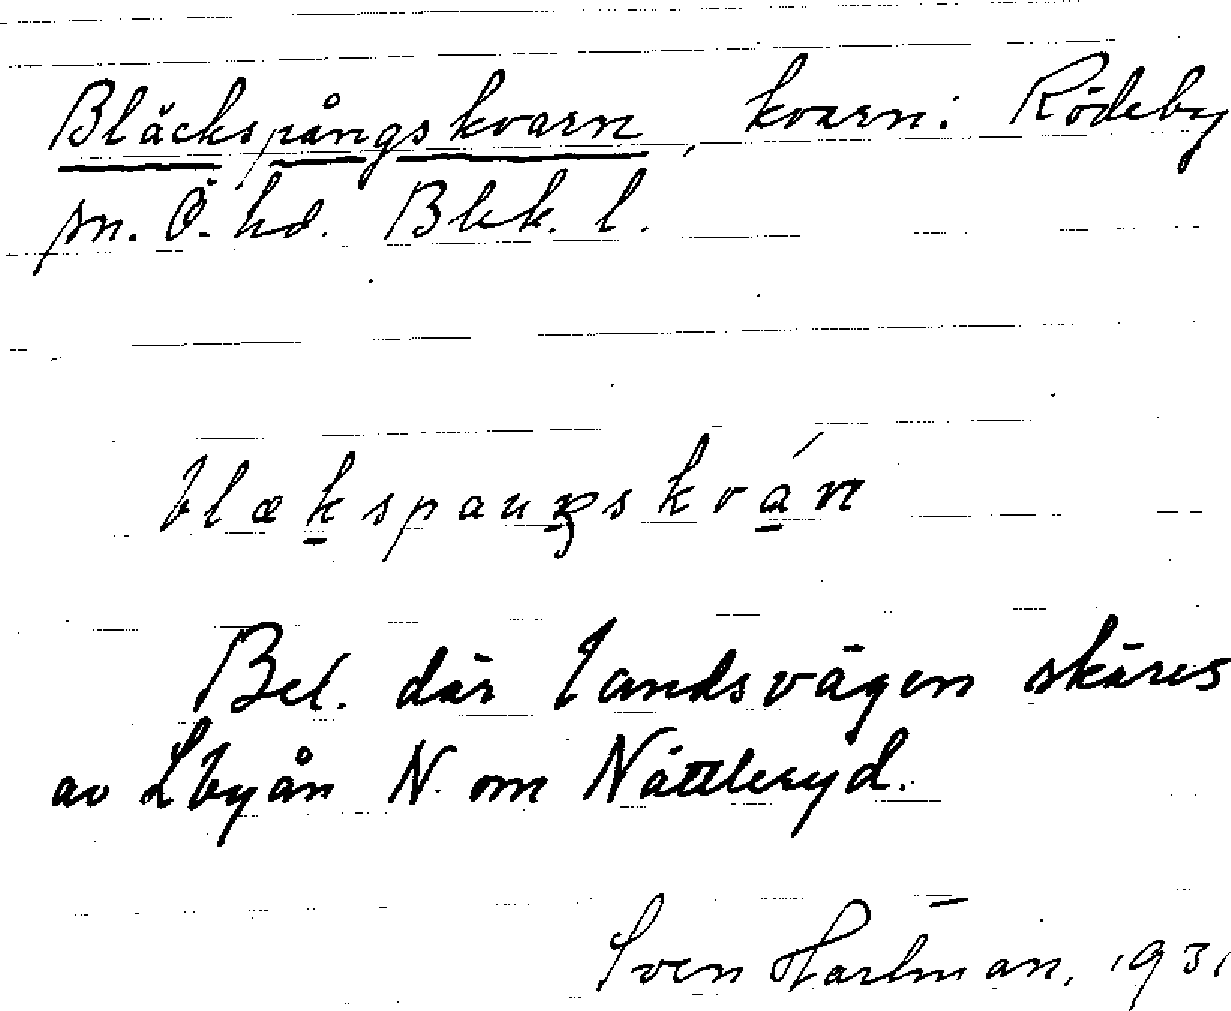 Bläckspångskvarn, kvarn: Rödeby
sn. Ö. hd. Blek. l.
blækspauŋskván
Bel. där landsvägen skäres
av Lbyån N. om Nättlesryd.
Sven Hartman, 1931